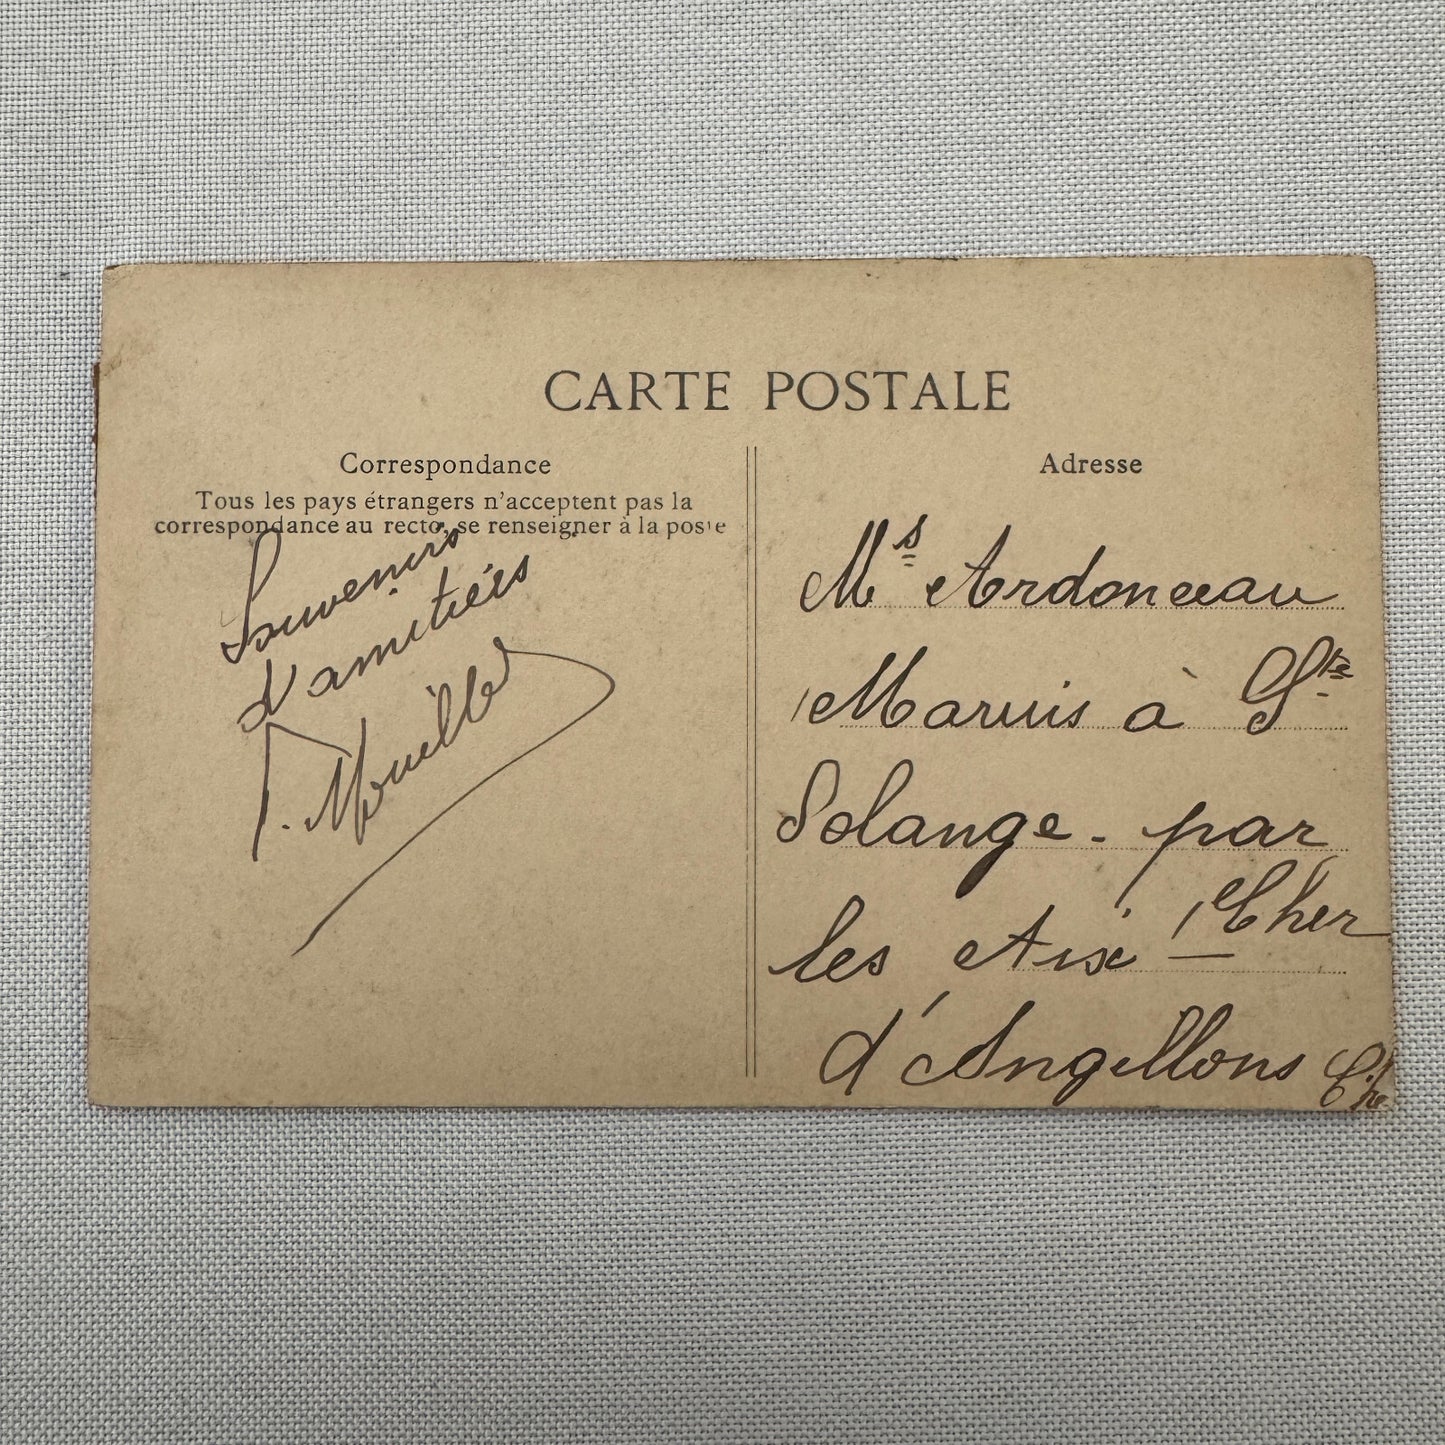 CARTE POSTALE
Correspondance
Tous les pays étrangers n'acceptent pas la
correspondance au recto, se renseigner à la poste
Souvenirs
d'amitiés
Adresse
Ms Ardonceau
Marius à Ste
Solange - par
les Aix Cher
d'Angillons Che